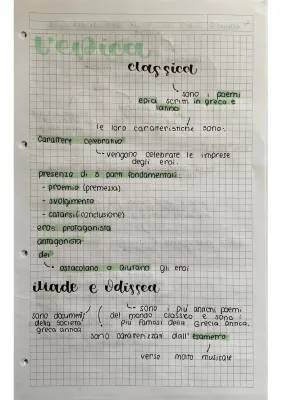 L'epica
classica
sono i poemi
epici scritti in greco e
latino
le loro caratteristiche sono:
carattere celebrativo
vengono celebrate le imprese
degli eroi.
presenza di 3 parti fondamentali:
- proemio (premessa)
- svolgimento
- catarsi (conclusione)
eroe protagonista
antagonista
dei
ostacolano o aiutano gli eroi
iliade e Odissea
sono i più antichi poemi
sono documenti del mondo classico e sono i
della società più famosi della Grecia antica.
greca antica
sono caratterizzati dall'esametro
verso molto musicale